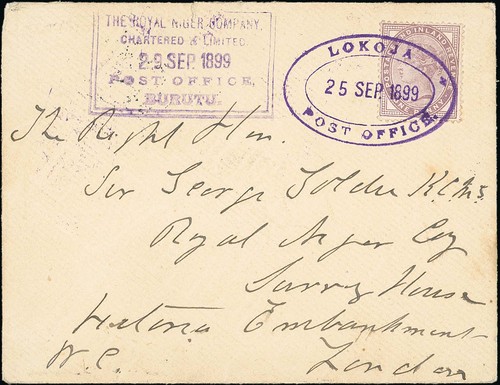 THE ROYAL NIGER COMPANY,
CHARTERED & LIMITED
29 SEP 1899
POST OFFICE,
BURUTU.
LOKOJA
25 SEP 1899
POST OFFICE.
INLAND REVE
POSTA
ONE PENNY
The Right Hon.
Sir George Goldie K.C.M.G.
Royal Niger Coy
Surrey House
Victoria Embankment
W.C. London